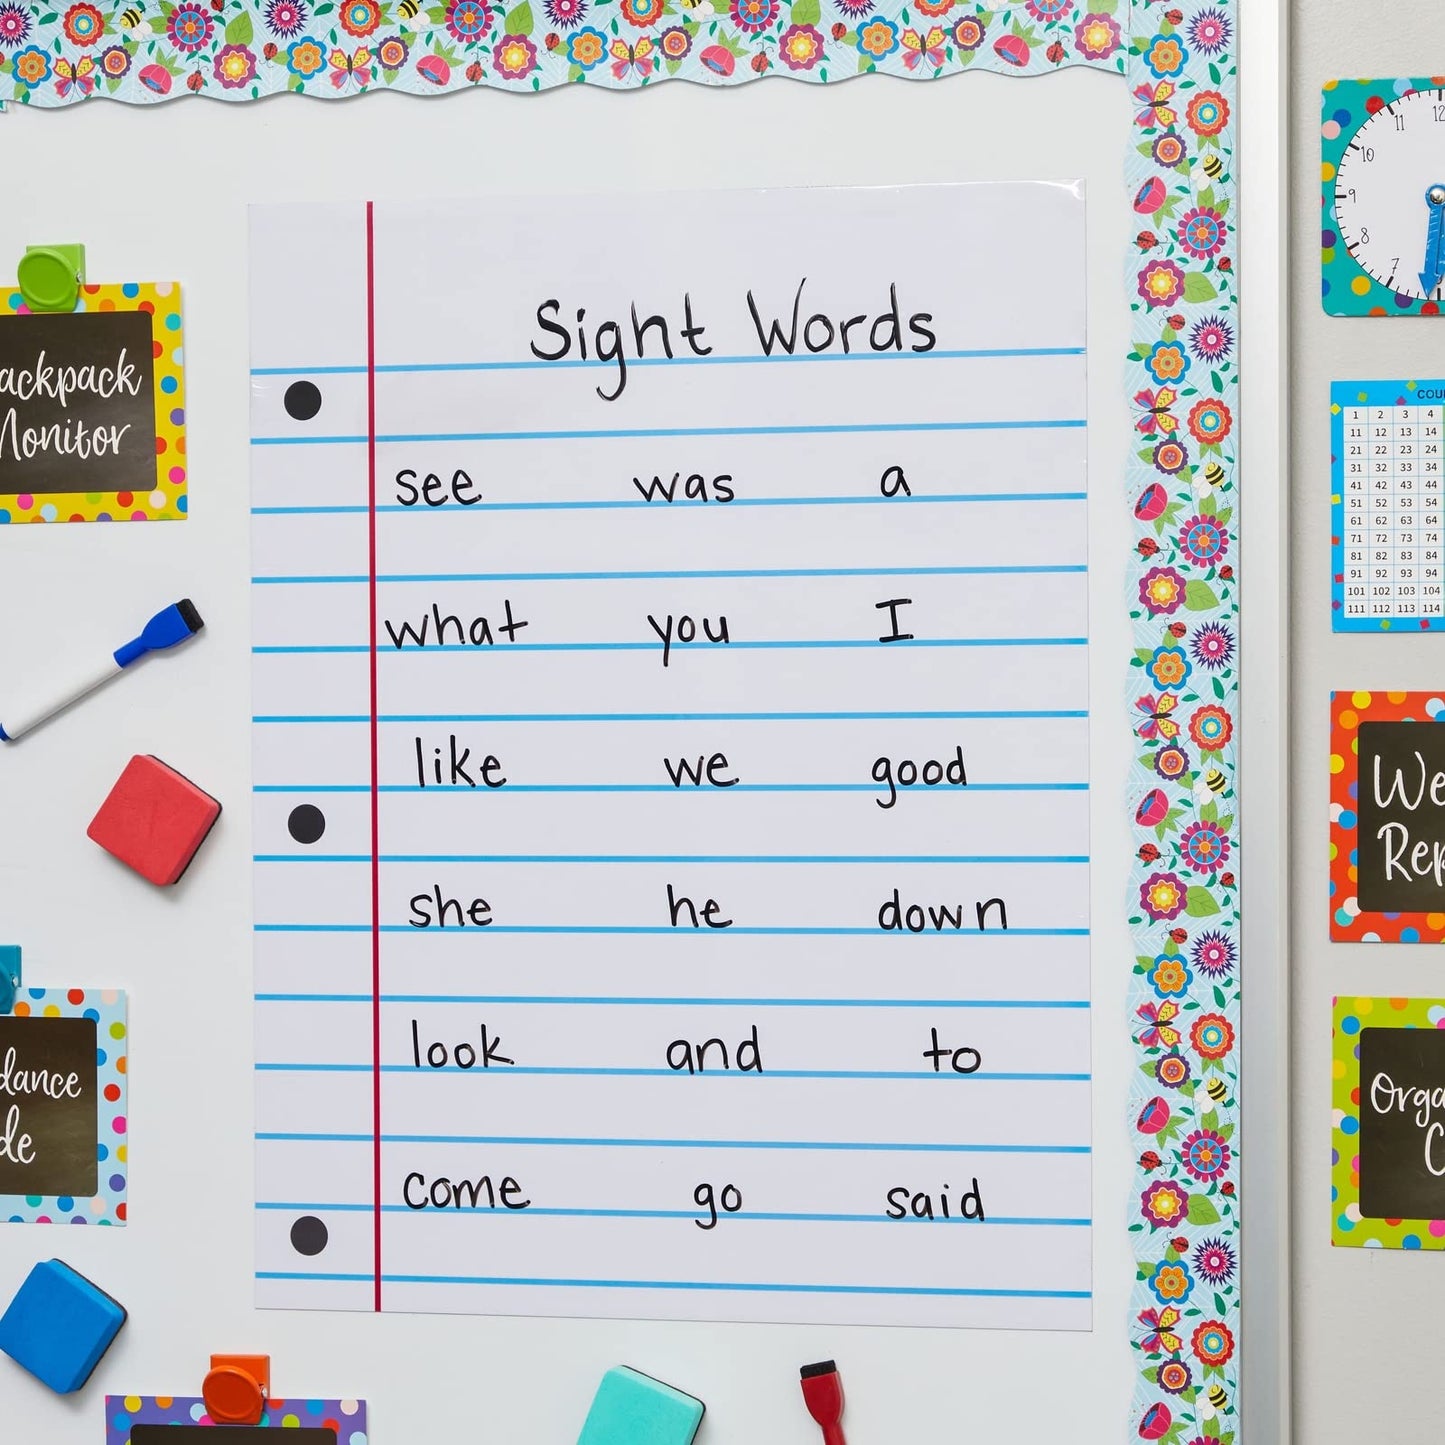 Sight Words
see was a
what you I
like we good
she he down
look and to
come go said
Monitor
12
11
10
9
8
7
1 2 3 4
11 12 13 14
21 22 23 24
31 32 33 34
41 42 43 44
51 52 53 54
61 62 63 64
71 72 73 74
81 82 83 84
91 92 93 94
101 102 103 104
111 112 113 114